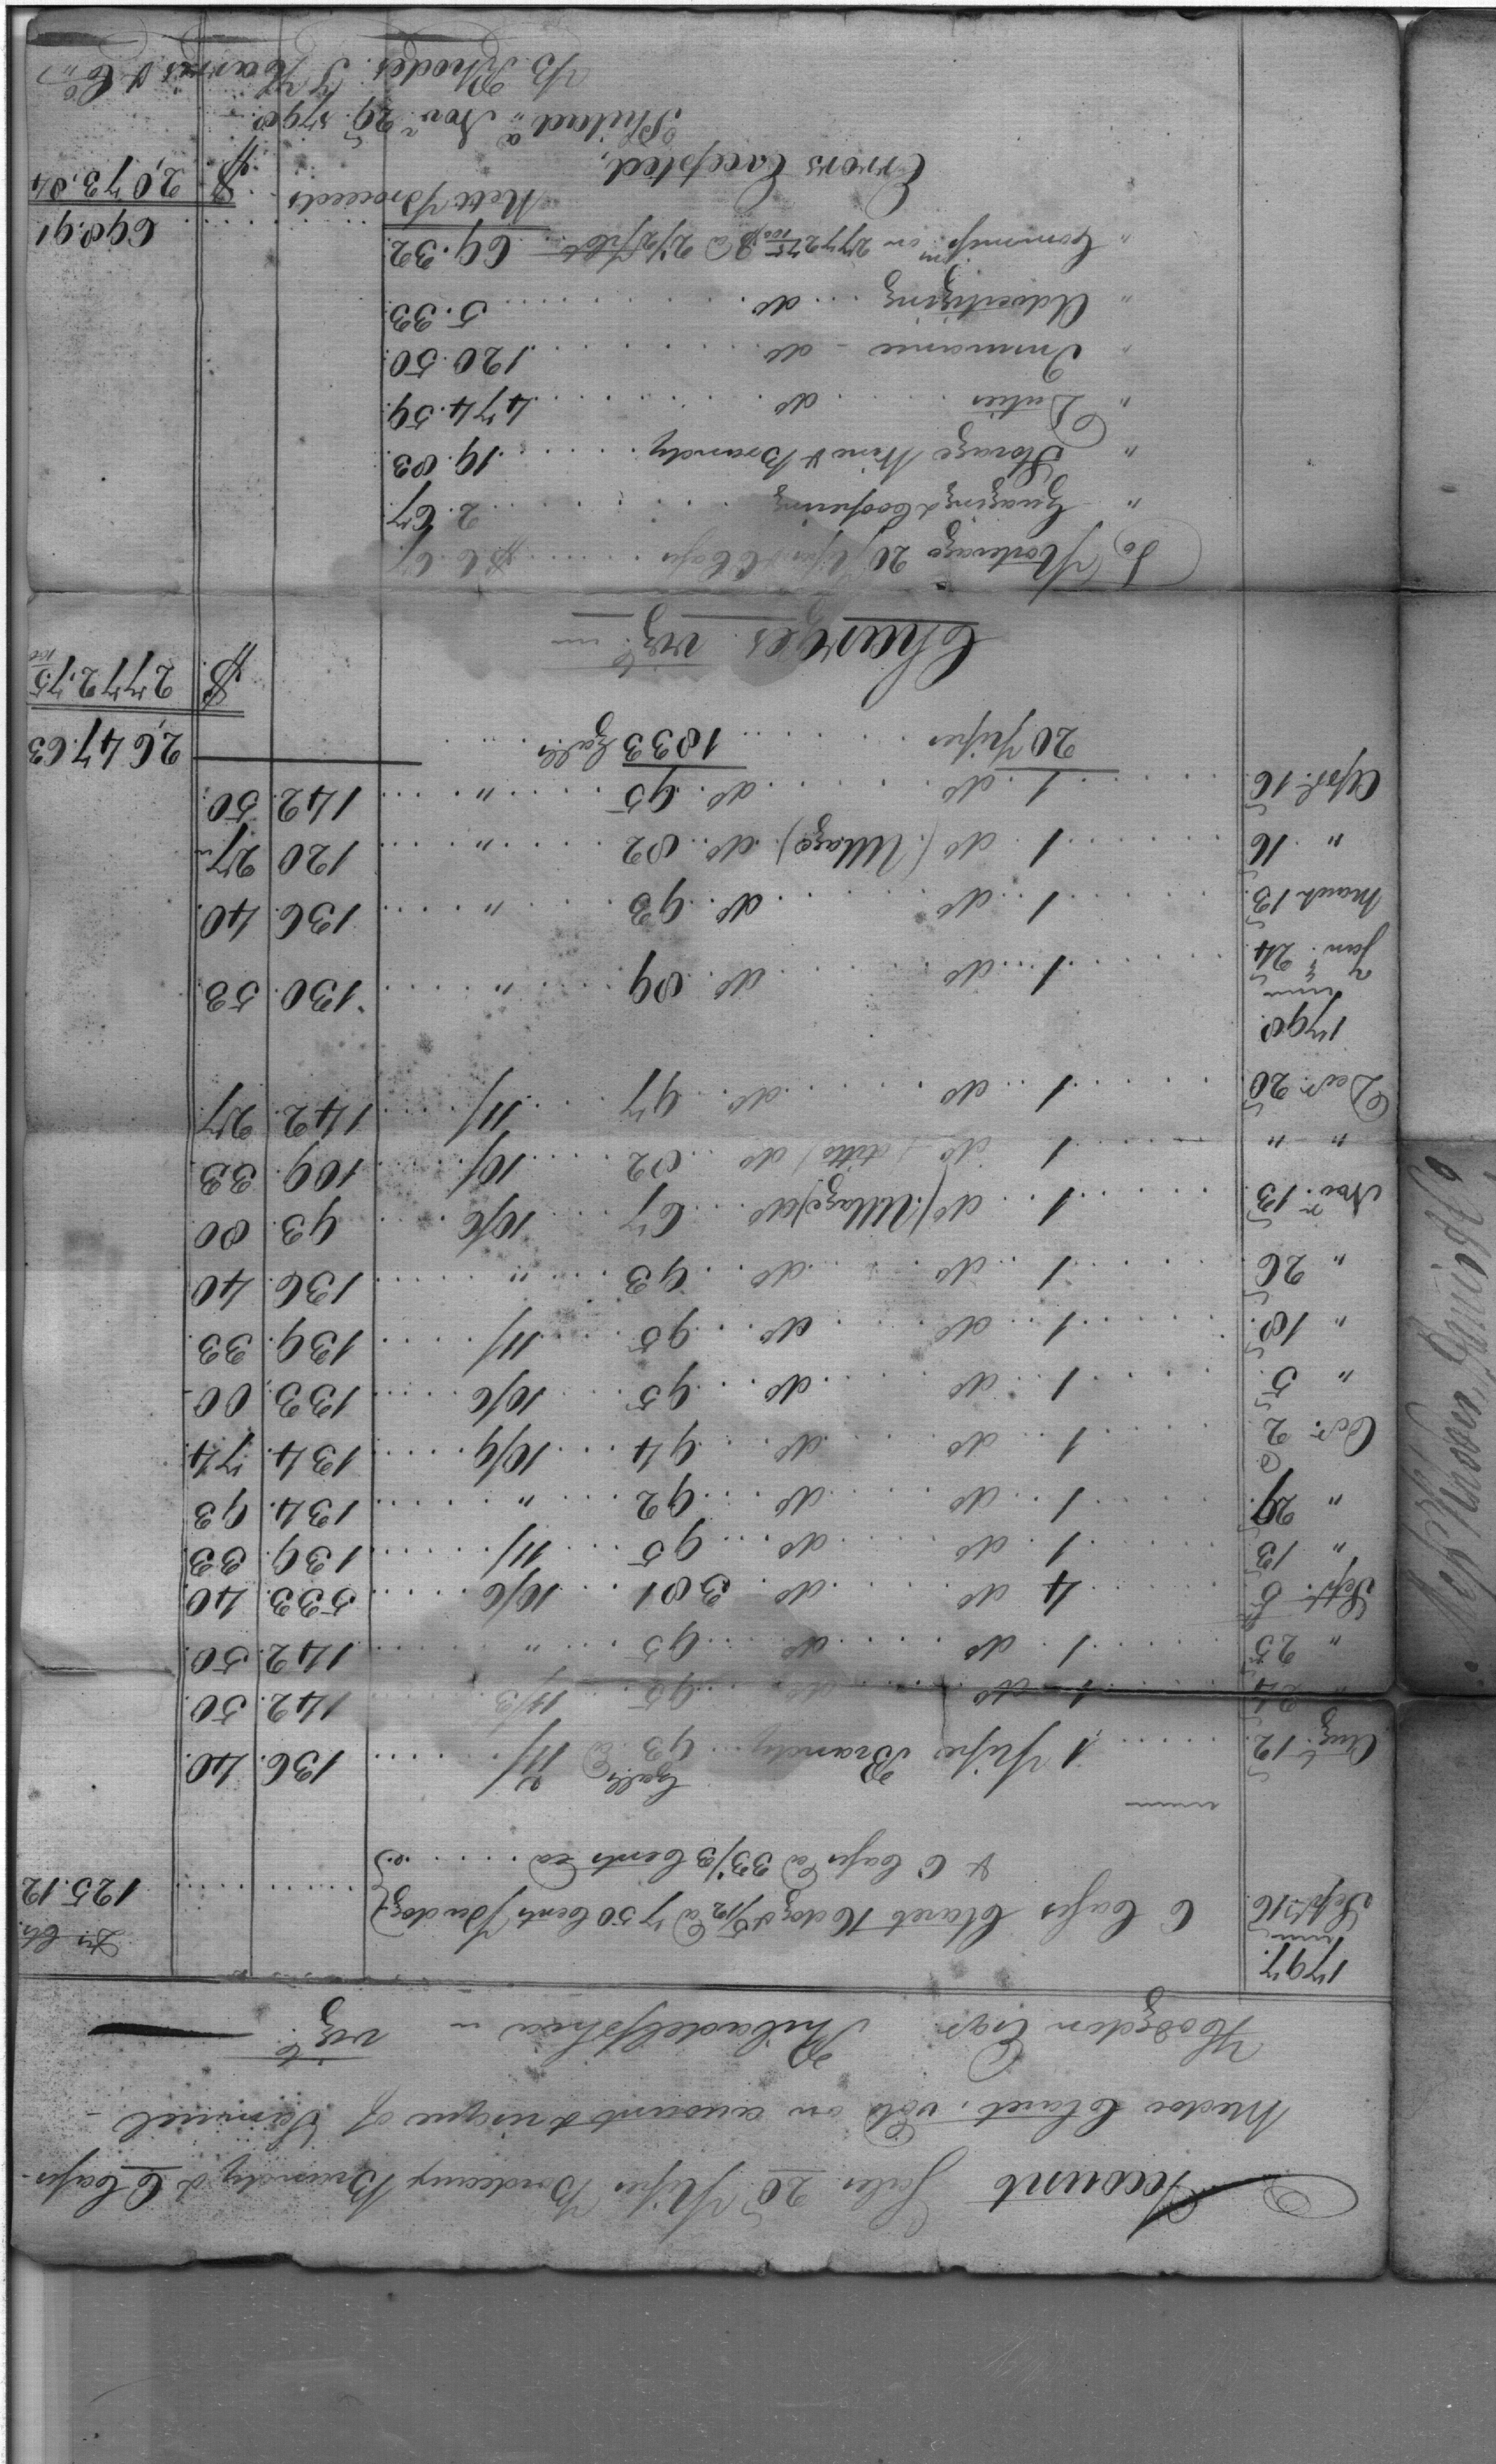 Account Sales 20 Pipes Bordeaux Brandy & 6 Cases
Medoc Claret, sold on account & risque of Samuel
Hodgdon Esqr Philadelphia vizt
1797 Drs Cts.
Septr 16 6 Cases Claret 16 doz & 5/12 @ 7 50 Cents per doz
& 6 Cases @ 33 1/3 Cents ea 125.12
Augt 12 1 Pipe Brandy 93 Galls @ 11/ 136. 40
" 24 1 do do 95 11/3 142. 50
" 25 1 do do 95 " 142. 50
Sept. 5 4 do do 381 10/6 533. 40
" 13 1 do do 95 11/ 139. 33
" 29 1 do do 92 " 134. 93
Octr 2 1 do do 94 10/9 134. 74
" 5 1 do do 95 10/6 133. 00
" 18 1 do do 95 11/ 139. 33
" 26 1 do do 93 " 136. 40
Novr 13 1 do (Ullage) do 67 10/6 93. 80
" " 1 do (ditto) do 82 10/ 109. 33
Decr 20 1 do do 97 11/ 142. 27
1798
Jany 24 1 do do 89 " 130. 53
March 13 1 do do 93 " 136. 40
" 16 1 do (Ullage) do 82 " 120 27
Apl. 16 1 do do 95 " 142. 50
20 Pipes 1833 Galls 2,647.63
$ 2772.75/100
Charges vizt
To Porterage 20 Pipes & 6 Cases $6.67
" Guaging & Coopering 2.67
" Storage Wine & Brandy 19.83
" Duties do 474.59
" Insurance do 120.50
" Advertizing do 5.33
" Commissn on 2772 75/100 $ @ 2 1/2 pr Ct 69.32 698.91
Nett Proceeds $ 2,073.84
Errors Excepted,
Philada Novr 29 1798
B. Rhodes. J Harris & Co